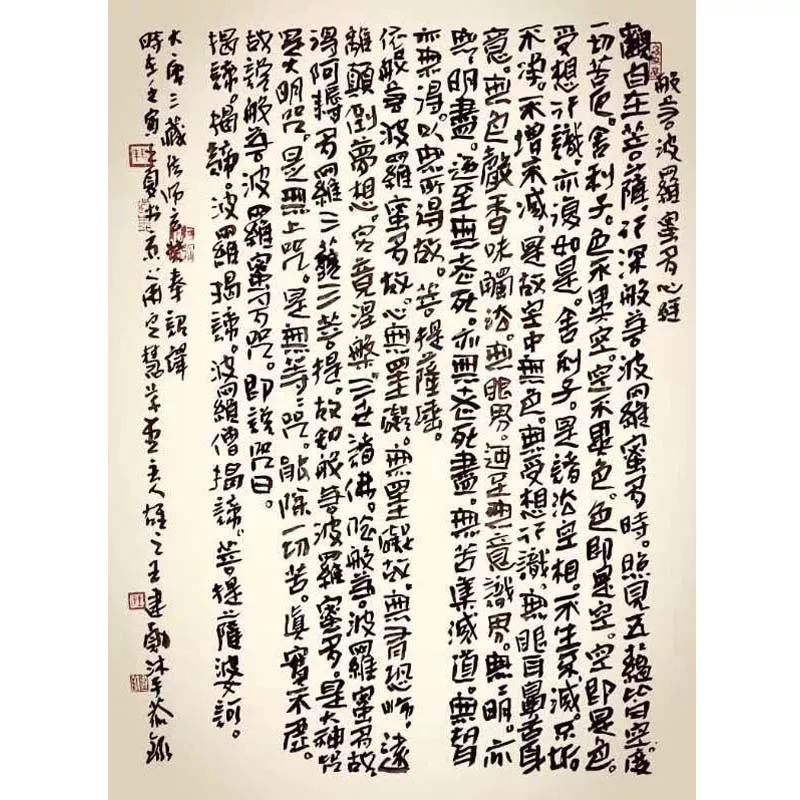 般若波羅蜜多心經
觀自在菩薩。行深般若波羅蜜多時。照見五蘊皆空。度
一切苦厄。舍利子。色不異空。空不異色。色即是空。空即是色。
受想行識。亦復如是。舍利子。是諸法空相。不生不滅。不垢
不淨。不增不減。是故空中無色。無受想行識。無眼耳鼻舌身
意。無色聲香味觸法。無眼界。迺至無意識界。無〻明。亦
無〻明盡。迺至無老死。亦無老死盡。無苦集滅道。無智
亦無得。以無所得故。菩提薩埵。
依般若波羅蜜多故。心無罣礙。無罣礙故。無有恐怖。遠
離顛倒夢想。究竟涅槃。三世諸佛。依般若。波羅蜜多故。
得阿耨多羅三藐三菩提。故知般若波羅蜜多。是大神咒
是大明咒。是無上咒。是無等〻咒。能除一切苦。真實不虛。
故說般若波羅蜜多咒。即說咒曰。
揭諦。揭諦。波羅揭諦。波羅僧揭諦。菩提薩婆訶。
大唐三藏法師玄奘奉詔譯
時在壬寅之夏於京 王建勳沐手恭錄